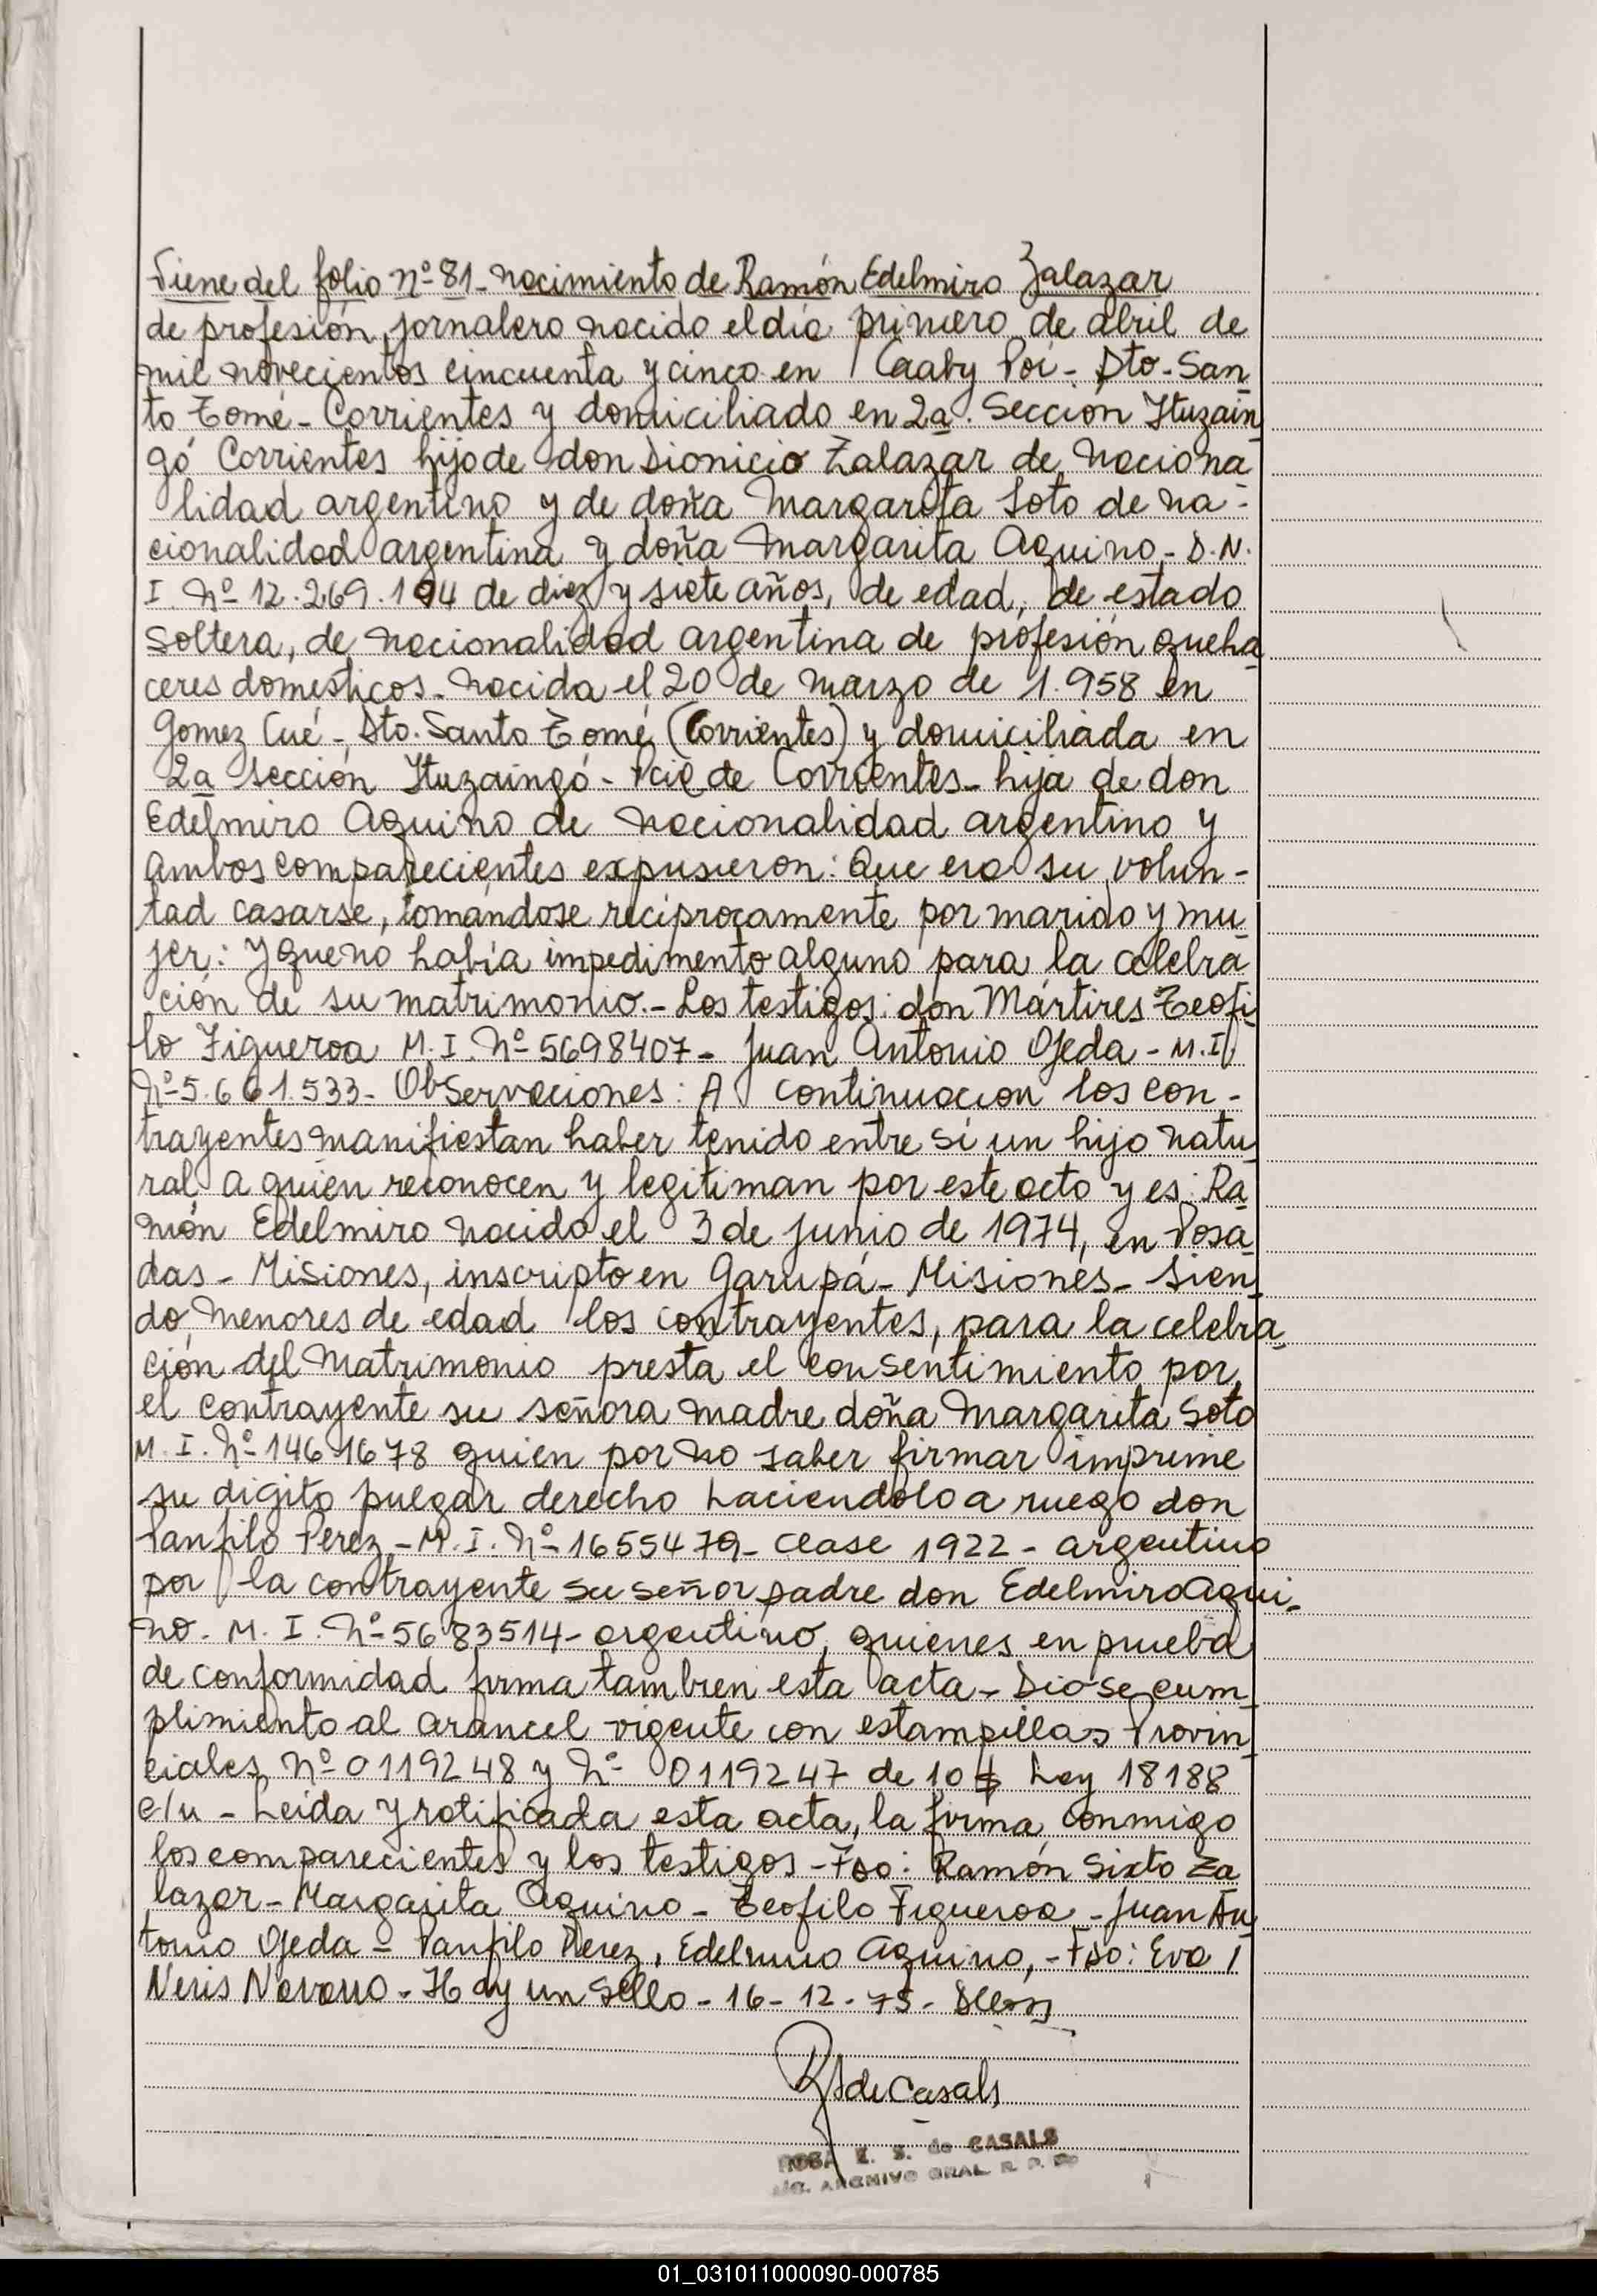 Viene del folio nº 81 - nacimiento de Ramón Edelmiro Zalazar
de profesión, jornalero nacido el día primero de abril de
mil novecientos cincuenta y cinco en Caaby Poi - Dto. San
to Tomé - Corrientes y domiciliado en 2a. Sección Ituzain
gó Corrientes hijo de don Dionicio Zalazar de naciona
lidad argentino y de doña Margarita Soto de na-
cionalidad argentina y doña Margarita Aquino - D.N.
I. Nº 12.269.194 de diez y siete años, de edad, de estado
soltera, de nacionalidad argentina de profesión queha
ceres domésticos. nacida el 20 de marzo de 1.958 en
Gomez Cué - Dto. Santo Tomé (Corrientes) y domiciliada en
2a sección Ituzaingó - Pcia de Corrientes - hija de don
Edelmiro Aquino de nacionalidad argentino y
ambos comparecientes expusieron: Que era su volun-
tad casarse, tomándose recíprocamente por marido y mu
jer: Y que no había impedimento alguno para la celebra
ción de su matrimonio. - Los testigos: don Mártires Teofi
lo Figueroa M.I. Nº 5698407 - Juan Antonio Ojeda - M.I.
Nº 5.661.533 - Observaciones: A continuacion los con-
trayentes manifiestan haber tenido entre sí un hijo natu
ral a quien reconocen y legitiman por este acto y es: Ra
món Edelmiro nacido el 3 de junio de 1974, en Posa
das - Misiones, inscripto en Garupá - Misiones - Sien
do menores de edad los contrayentes, para la celebra
ción del matrimonio presta el consentimiento por
el contrayente su señora madre doña Margarita Soto
M.I. Nº 1461678 quien por no saber firmar imprime
su digito pulgar derecho haciendolo a ruego don
Panfilo Perez - M.I. Nº 1655479 - clase 1922 - argentino
por la contrayente su señor padre don Edelmiro Aqui-
no. M.I. Nº 5683514 - argentino, quienes en prueba
de conformidad firma tambien esta acta - Dióse cum
plimiento al arancel vigente con estampillas Provin
ciales Nº 0119248 y Nº 0119247 de 10 $ Ley 18188
c/u - Leída y ratificada esta acta, la firma conmigo
los comparecientes y los testigos - Fdo: Ramón Sixto Za
lazar - Margarita Aquino - Teofilo Figueroa - Juan An
tonio Ojeda - Panfilo Perez, Edelmiro Aquino, - Fdo: Eva I
Neris Navarro - Hay un Sello - 16 - 12 - 75 -
RS de Casals
ROSA E. S. de CASALS
ARCHIVO GRAL. R. P.
01_031011000090-000785